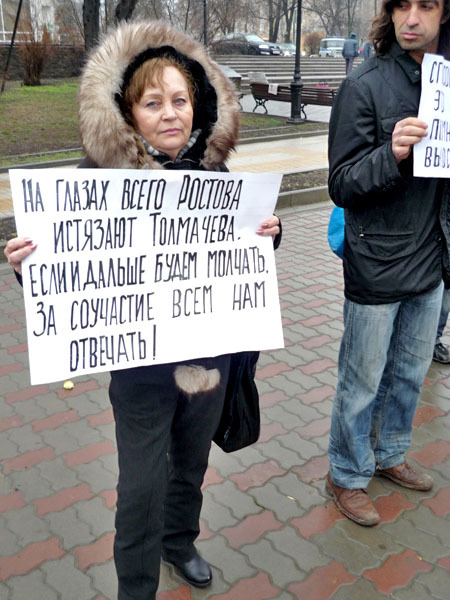 НА ГЛАЗАХ ВСЕГО РОСТОВА
ИСТЯЗАЮТ ТОЛМАЧЕВА.
ЕСЛИ И ДАЛЬШЕ БУДЕМ МОЛЧАТЬ.
ЗА СОУЧАСТИЕ ВСЕМ НАМ
ОТВЕЧАТЬ!